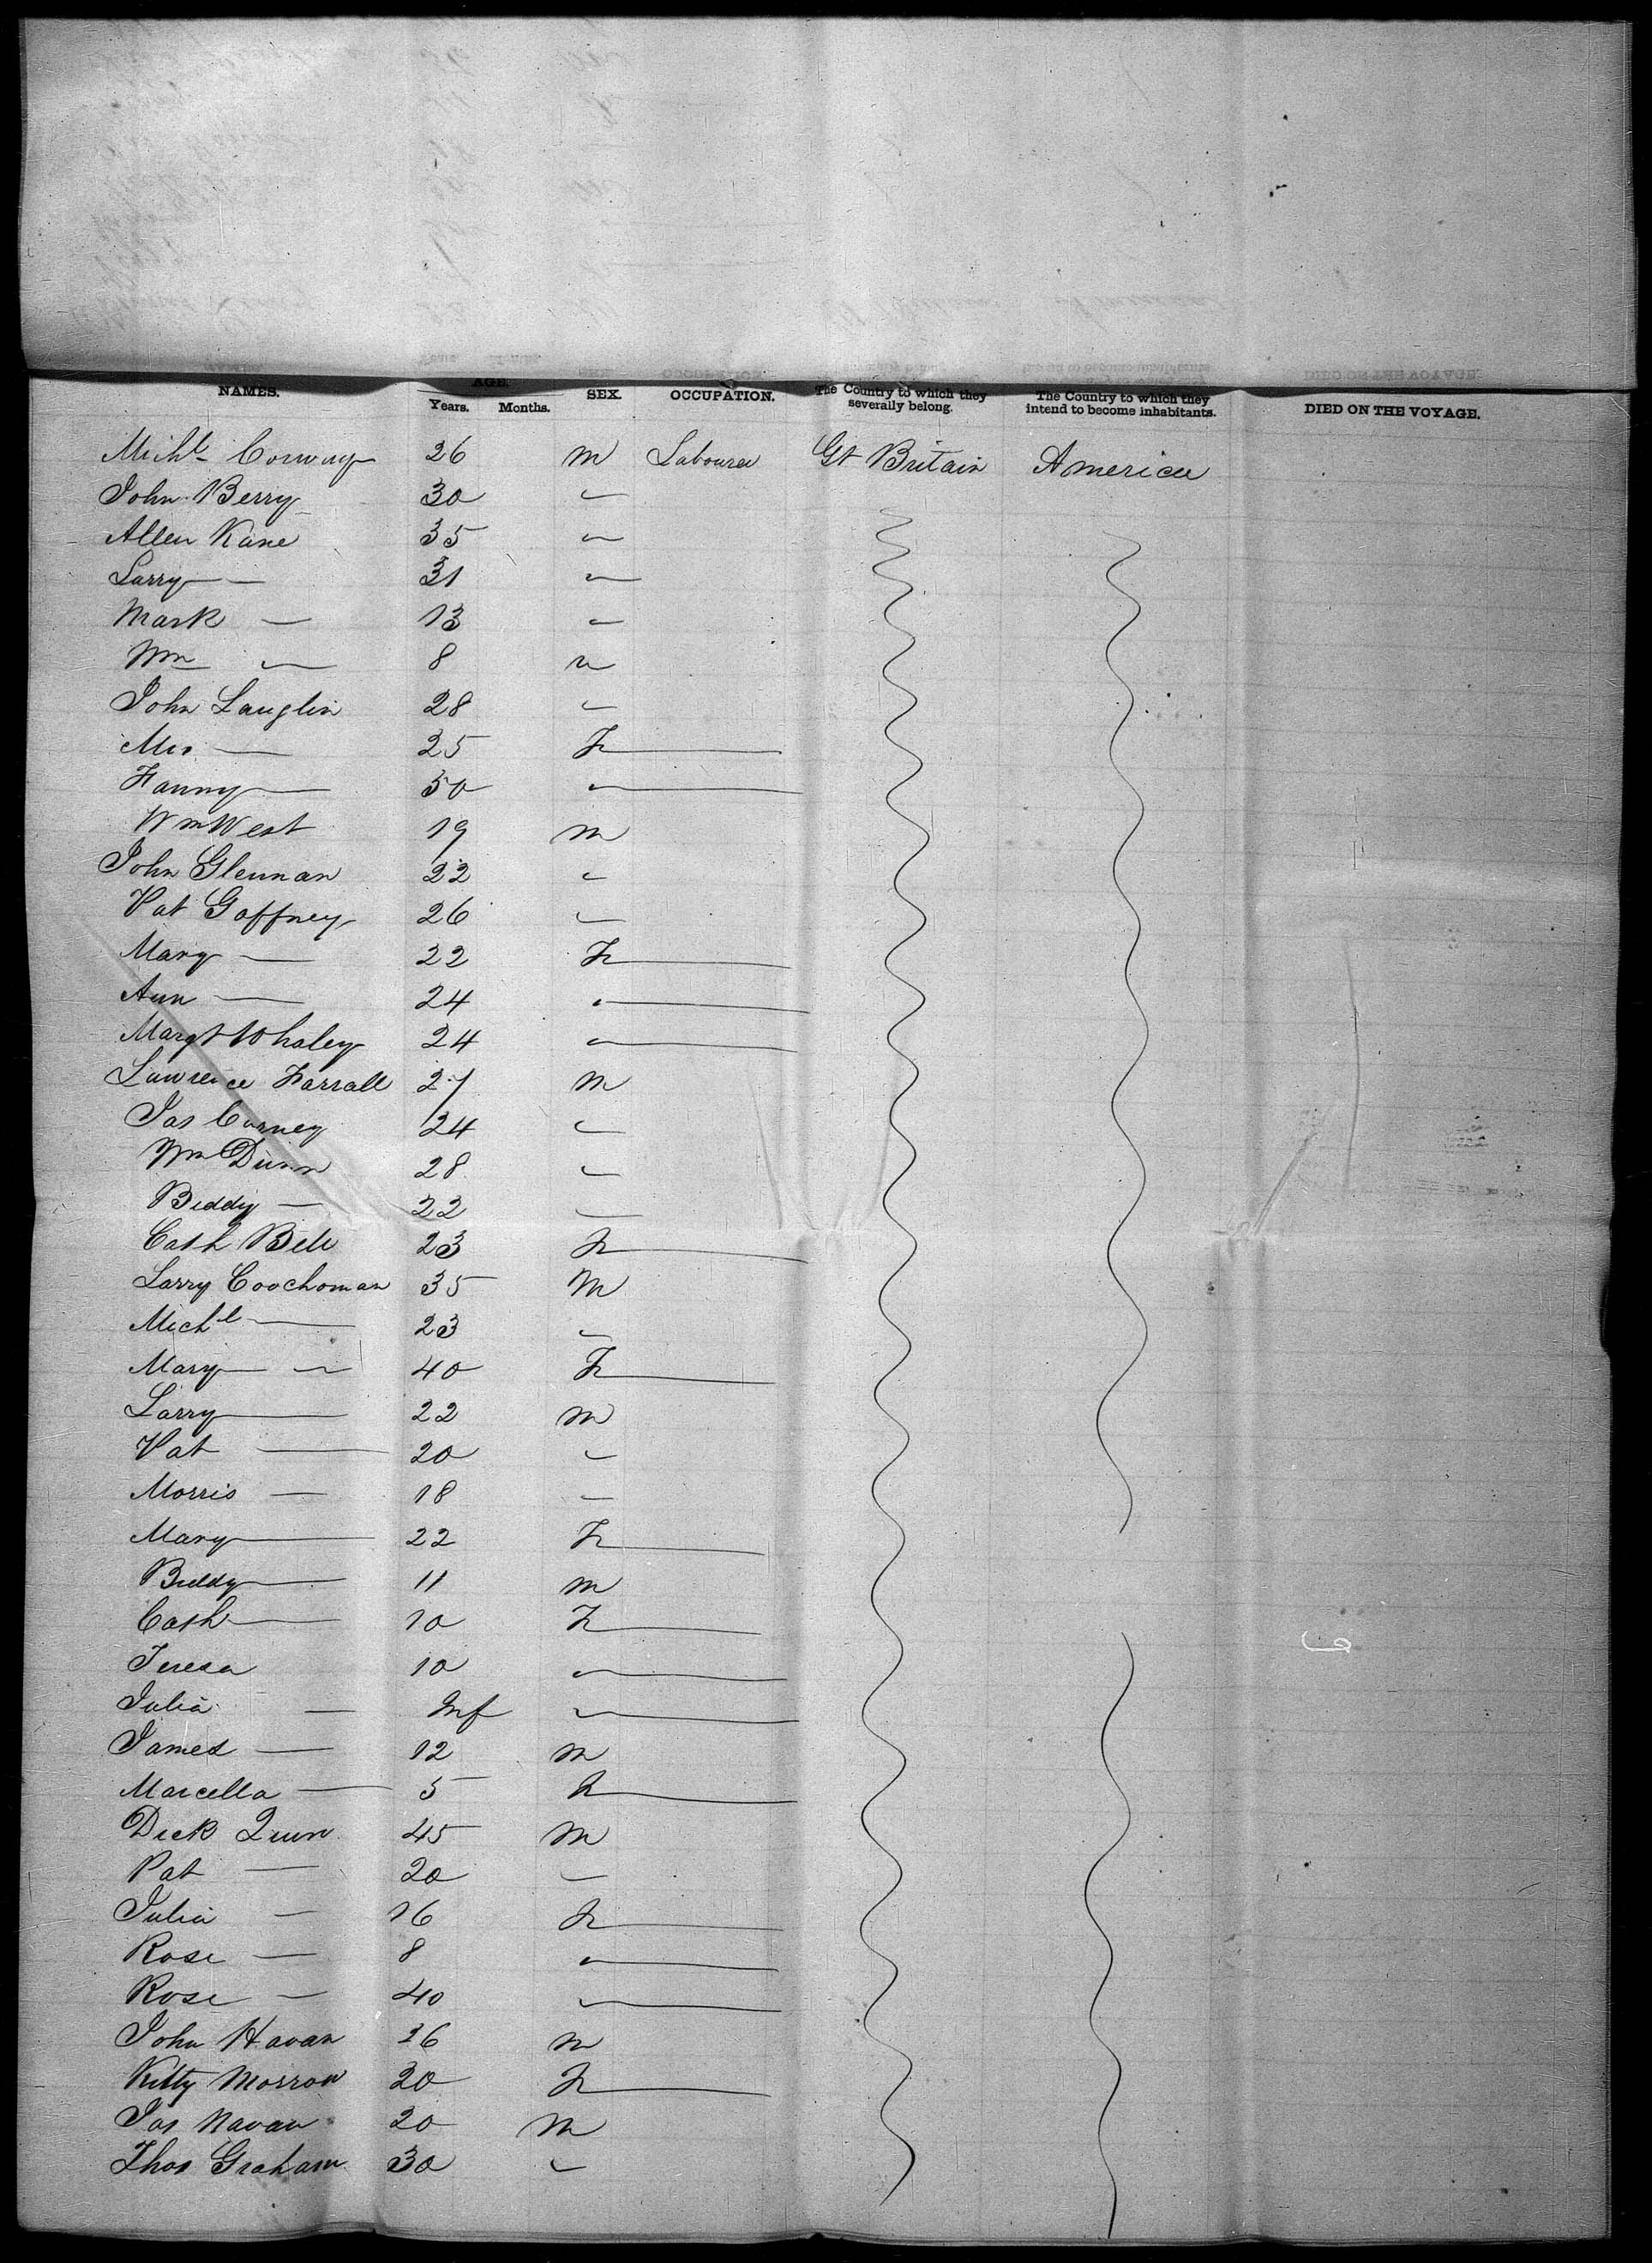 NAMES. AGE. Years. Months. SEX. OCCUPATION. The Country to which they severally belong. The Country to which they intend to become inhabitants. DIED ON THE VOYAGE.
Michl Conway 26 m Labourer Gt Britain America
John Berry 30 "
Allen Kane 35 "
Larry — 31 "
Mark — 13 "
Wm — 8 "
John Lauglin 28 "
Mrs — 25 F
Fanny — 50 "
Wm West 19 m
John Glennan 22 "
Pat Gaffney 26 "
Mary — 22 F
Ann — 24 "
Margt Whaley 24 "
Lawrence Farrall 27 m
Jas Carney 24 "
Wm Dunn 28 "
Biddy — 22 "
Cath Bell 23 F
Larry Coochoman 35 M
Michl — 23 "
Mary — 40 F
Larry — 22 m
Pat — 20 "
Morris — 18 "
Mary — 22 F
Biddy — 11 m
Cath — 10 F
Teresa 10 "
Julia — Inf "
James — 12 m
Marcella — 5 F
Dick Quinn 45 m
Pat — 20 "
Julia — 16 F
Rose — 8 "
Rose — 40 "
John Havan 26 m
Kitty Morrow 20 F
Jas Navan 20 m
Thos Graham 30 "